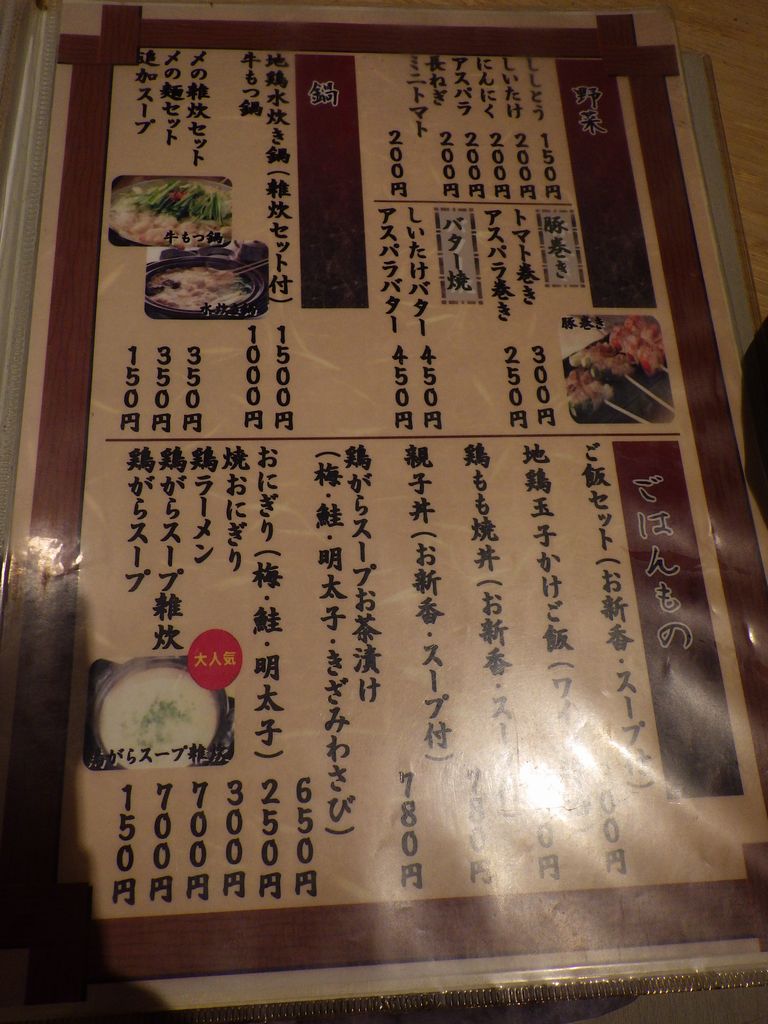 野菜
ししとう 150円
しいたけ 200円
にんにく 200円
アスパラ 200円
長ねぎ 200円
ミニトマト 200円
豚巻き
トマト巻き 300円
アスパラ巻き 250円
バター焼
しいたけバター 450円
アスパラバター 450円
豚巻き
鍋
地鶏水炊き鍋(雑炊セット付) 1500円
牛もつ鍋 1000円
〆の雑炊セット 350円
〆の麺セット 350円
追加スープ 150円
牛もつ鍋
水炊き鍋
ごはんもの
ご飯セット(お新香・スープ付) 00円
地鶏玉子かけご飯(ワイ 0円
鶏もも焼丼(お新香・スー 780円
親子丼(お新香・スープ付) 780円
鶏がらスープお茶漬け
(梅・鮭・明太子・きざみわさび) 650円
おにぎり(梅・鮭・明太子) 250円
焼おにぎり 300円
鶏ラーメン 700円
鶏がらスープ雑炊 700円
鶏がらスープ 150円
大人気
鶏がらスープ雑炊